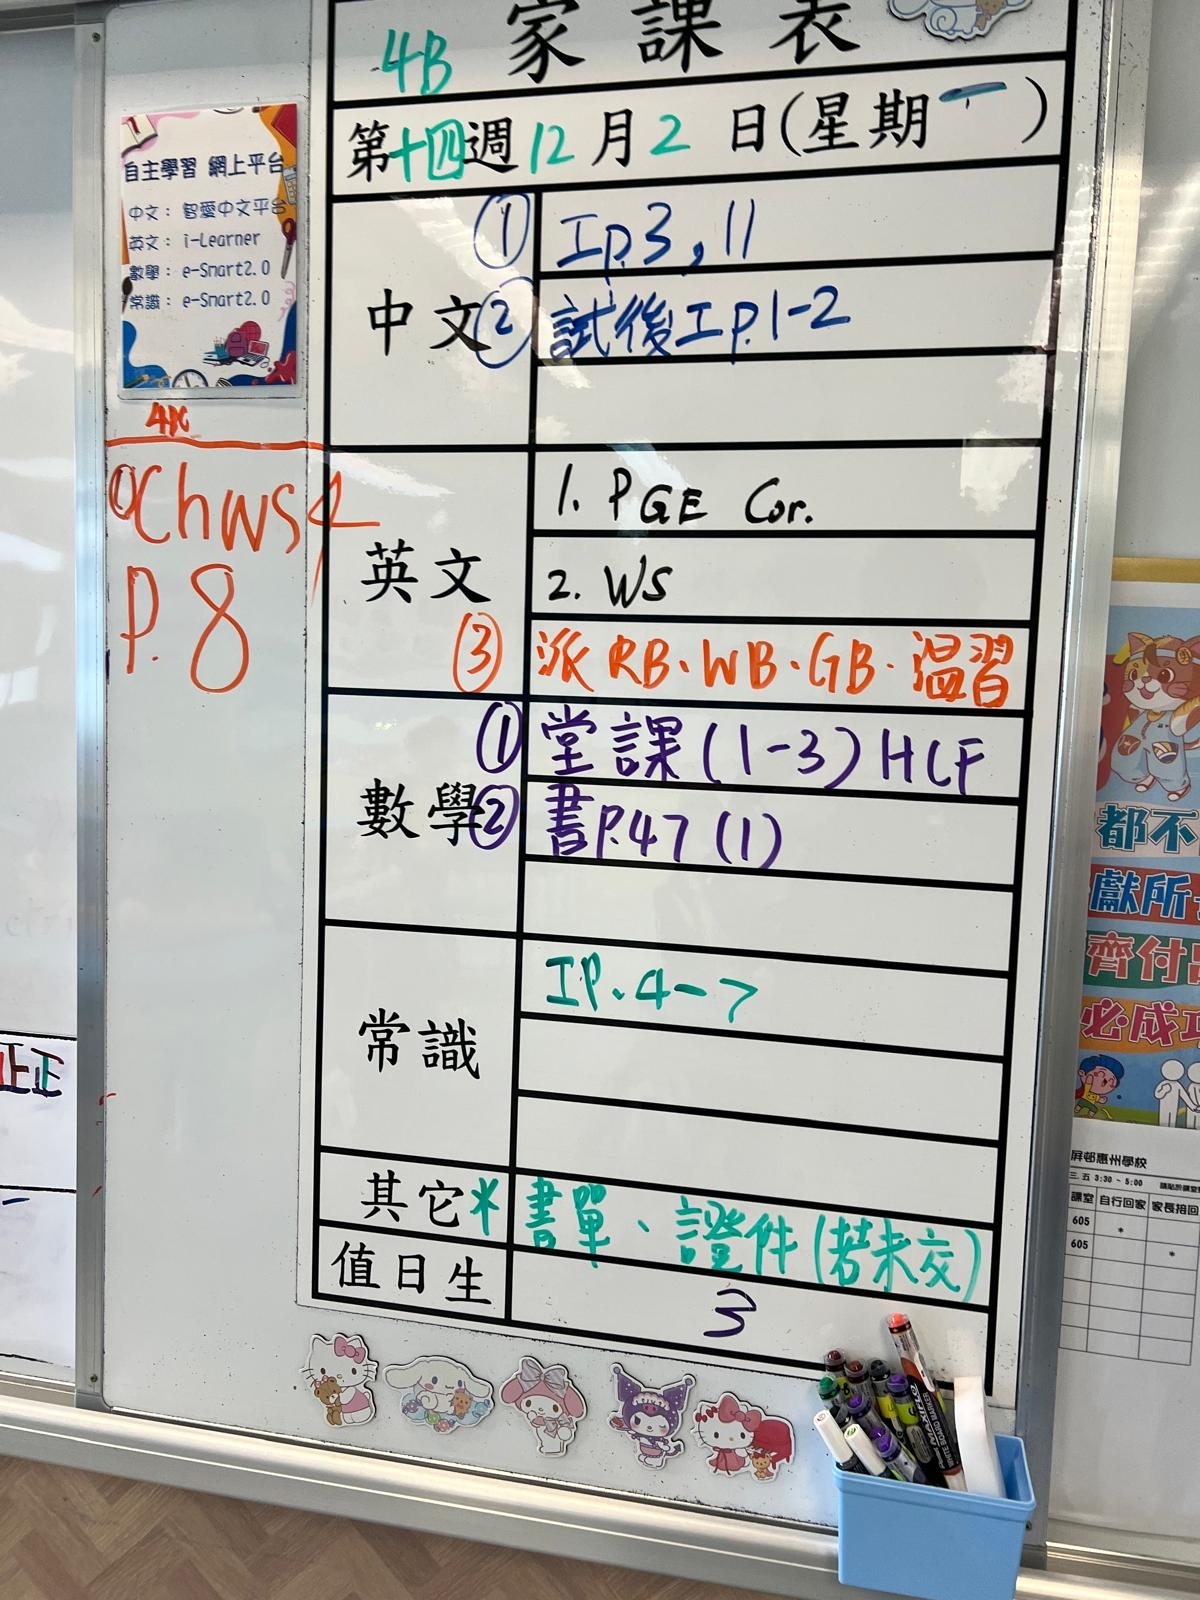 4B 家課表
第十四週12月2日(星期一)
中文
① 工p.3,11
② 試後工p.1-2
英文
1. PGE Cor.
2. WS
③ 派RB、WB、GB、溫習
數學
① 堂課(1-3)HCF
② 書P.47(1)
常識
工P.4-7
其它
* 書單、證件(若未交)
值日生
3
自主學習 網上平台
中文：智愛中文平台
英文：i-Learner
數學：e-Smart2.0
常識：e-Smart2.0
ChWS4
P.8
都不
獻所
齊付出
必成功
屏邨惠州學校
三,五 3:30 ~ 5:00
課室 自行回家 家長接回
605 *
605 *
正
MAXIFLO
WHITE BOARD MARKER